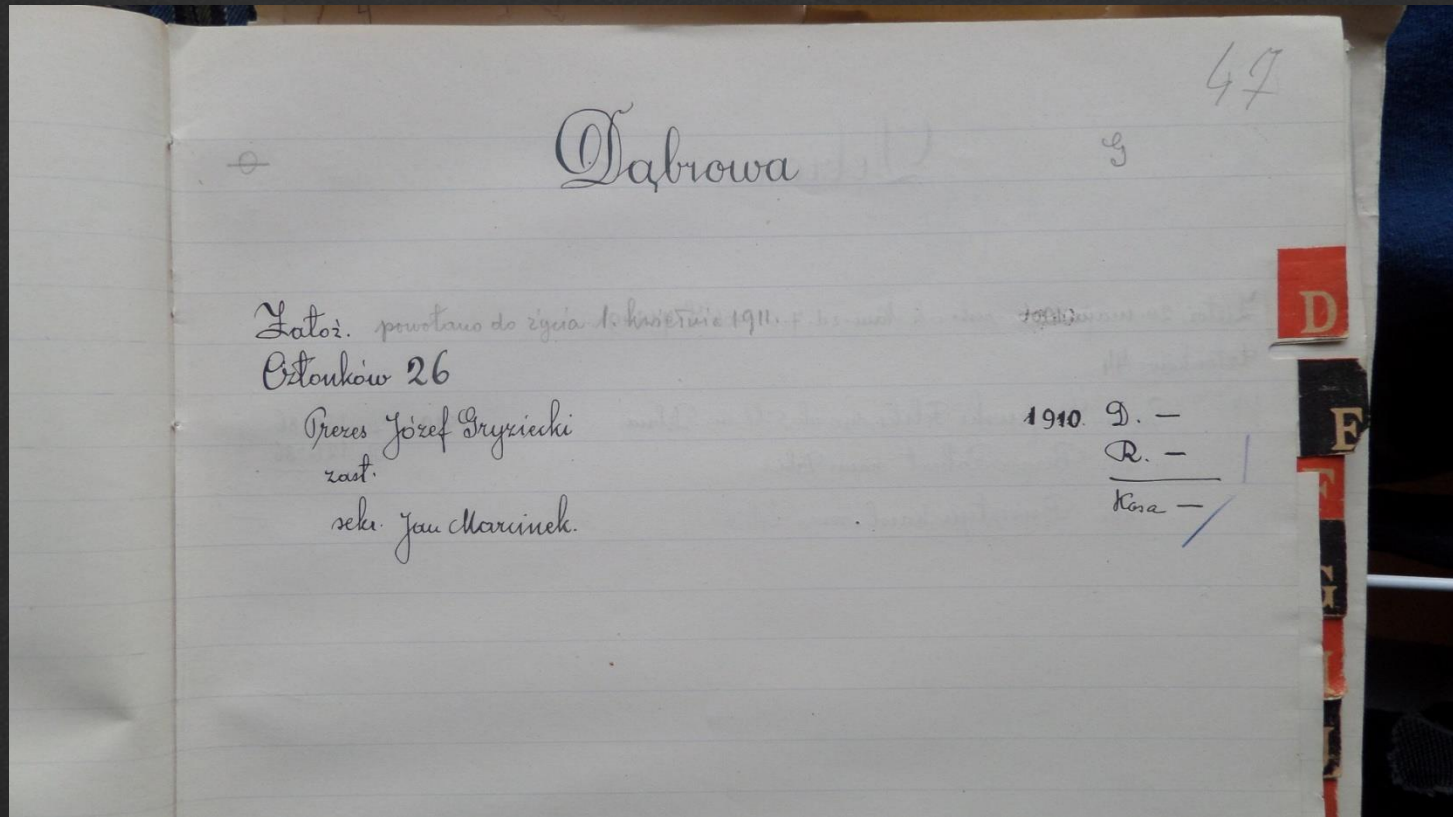 47
Dąbrowa
G
Założ. powołano do życia 1. kwietnia 1911.
Członków 26
Prezes Józef Gryziecki
1910. D. —
zast.
R. —
sekr. Jan Marcinek.
Kasa —
D
E
F
G